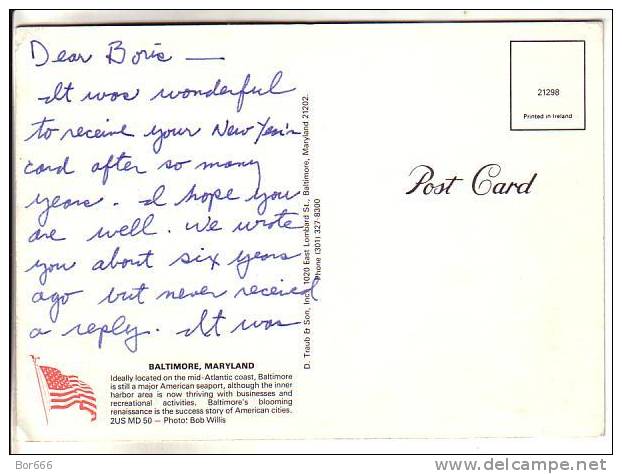 Dear Boris —
It was wonderful
to receive your New Year's
card after so many
years. I hope you
are well. We wrote
you about six years
ago but never received
a reply. It was
BALTIMORE, MARYLAND
Ideally located on the mid-Atlantic coast, Baltimore
is still a major American seaport, although the inner
harbor area is now thriving with businesses and
recreational activities. Baltimore's blooming
renaissance is the success story of American cities.
2US MD 50 — Photo: Bob Willis
D. Traub & Son, Inc., 1020 East Lombard St., Baltimore, Maryland 21202.
Phone (301) 327-8300
Post Card
21298
Printed in Ireland
Bor666
delcampe.net